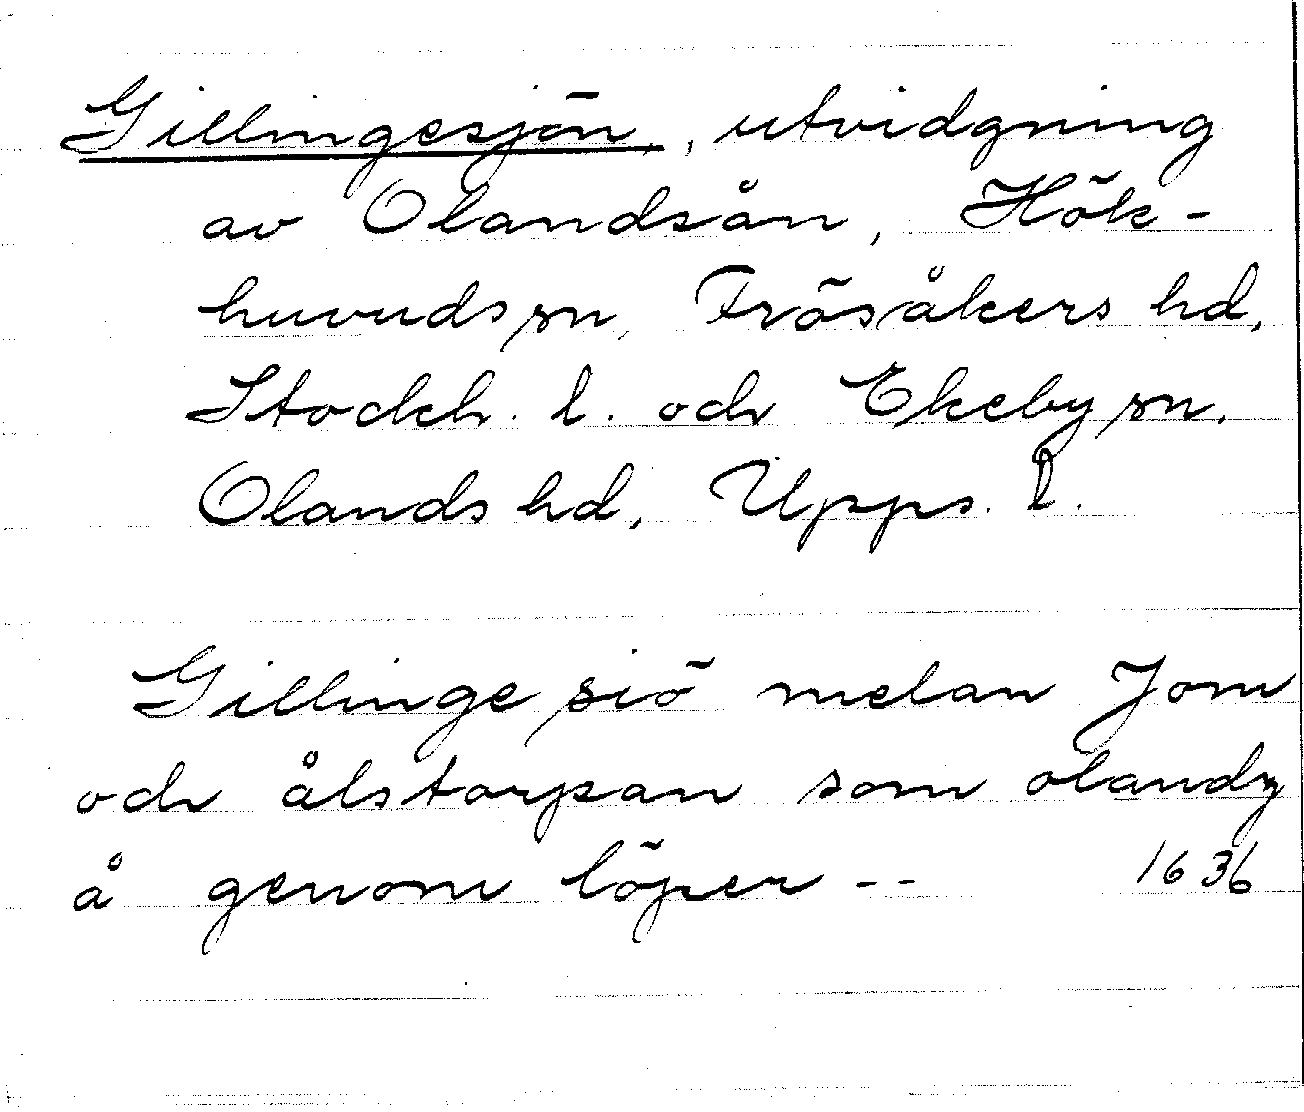 Gillingesjön, utvidgning
av Olandsån, Hök-
huvuds sn, Frösåkers hd,
Stockh. l. och Ekeby sn,
Olands hd, Upps. l.
Gillinge siö melan Jom
och ålstorpan som olandz
å genom löper -- 1636